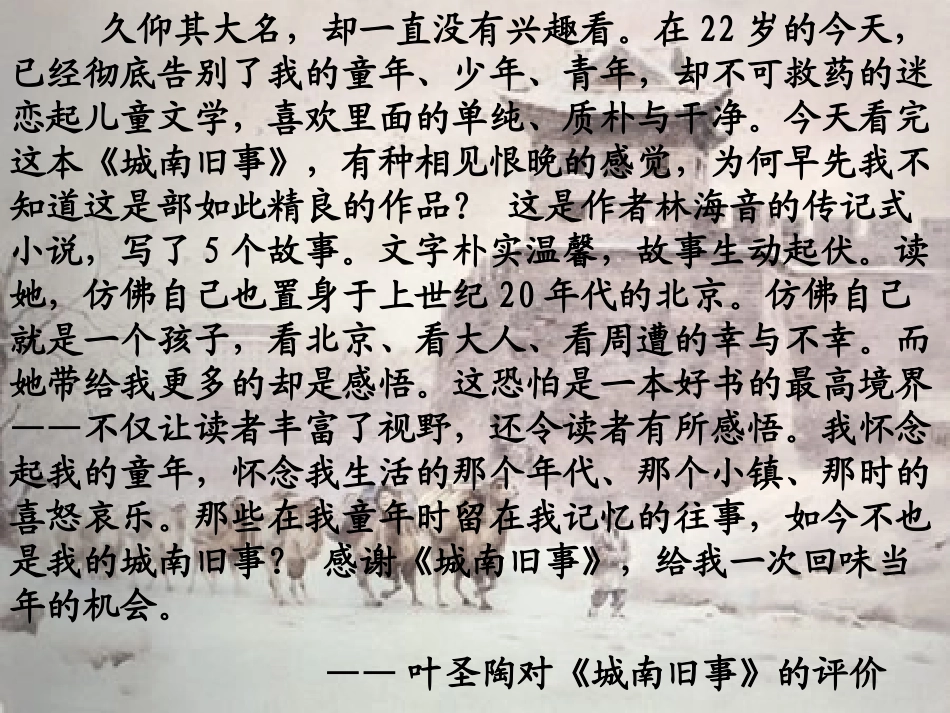 久仰其大名，却一直没有兴趣看。在 22 岁的今天，
已经彻底告别了我的童年、少年、青年，却不可救药的迷
恋起儿童文学，喜欢里面的单纯、质朴与干净。今天看完
这本《城南旧事》，有种相见恨晚的感觉，为何早先我不
知道这是部如此精良的作品？ 这是作者林海音的传记式
小说，写了 5 个故事。文字朴实温馨，故事生动起伏。读
她，仿佛自己也置身于上世纪 20 年代的北京。仿佛自己
就是一个孩子，看北京、看大人、看周遭的幸与不幸。而
她带给我更多的却是感悟。这恐怕是一本好书的最高境界
——不仅让读者丰富了视野，还令读者有所感悟。我怀念
起我的童年，怀念我生活的那个年代、那个小镇、那时的
喜怒哀乐。那些在我童年时留在我记忆的往事，如今不也
是我的城南旧事？ 感谢《城南旧事》，给我一次回味当
年的机会。
—— 叶圣陶对《城南旧事》的评价